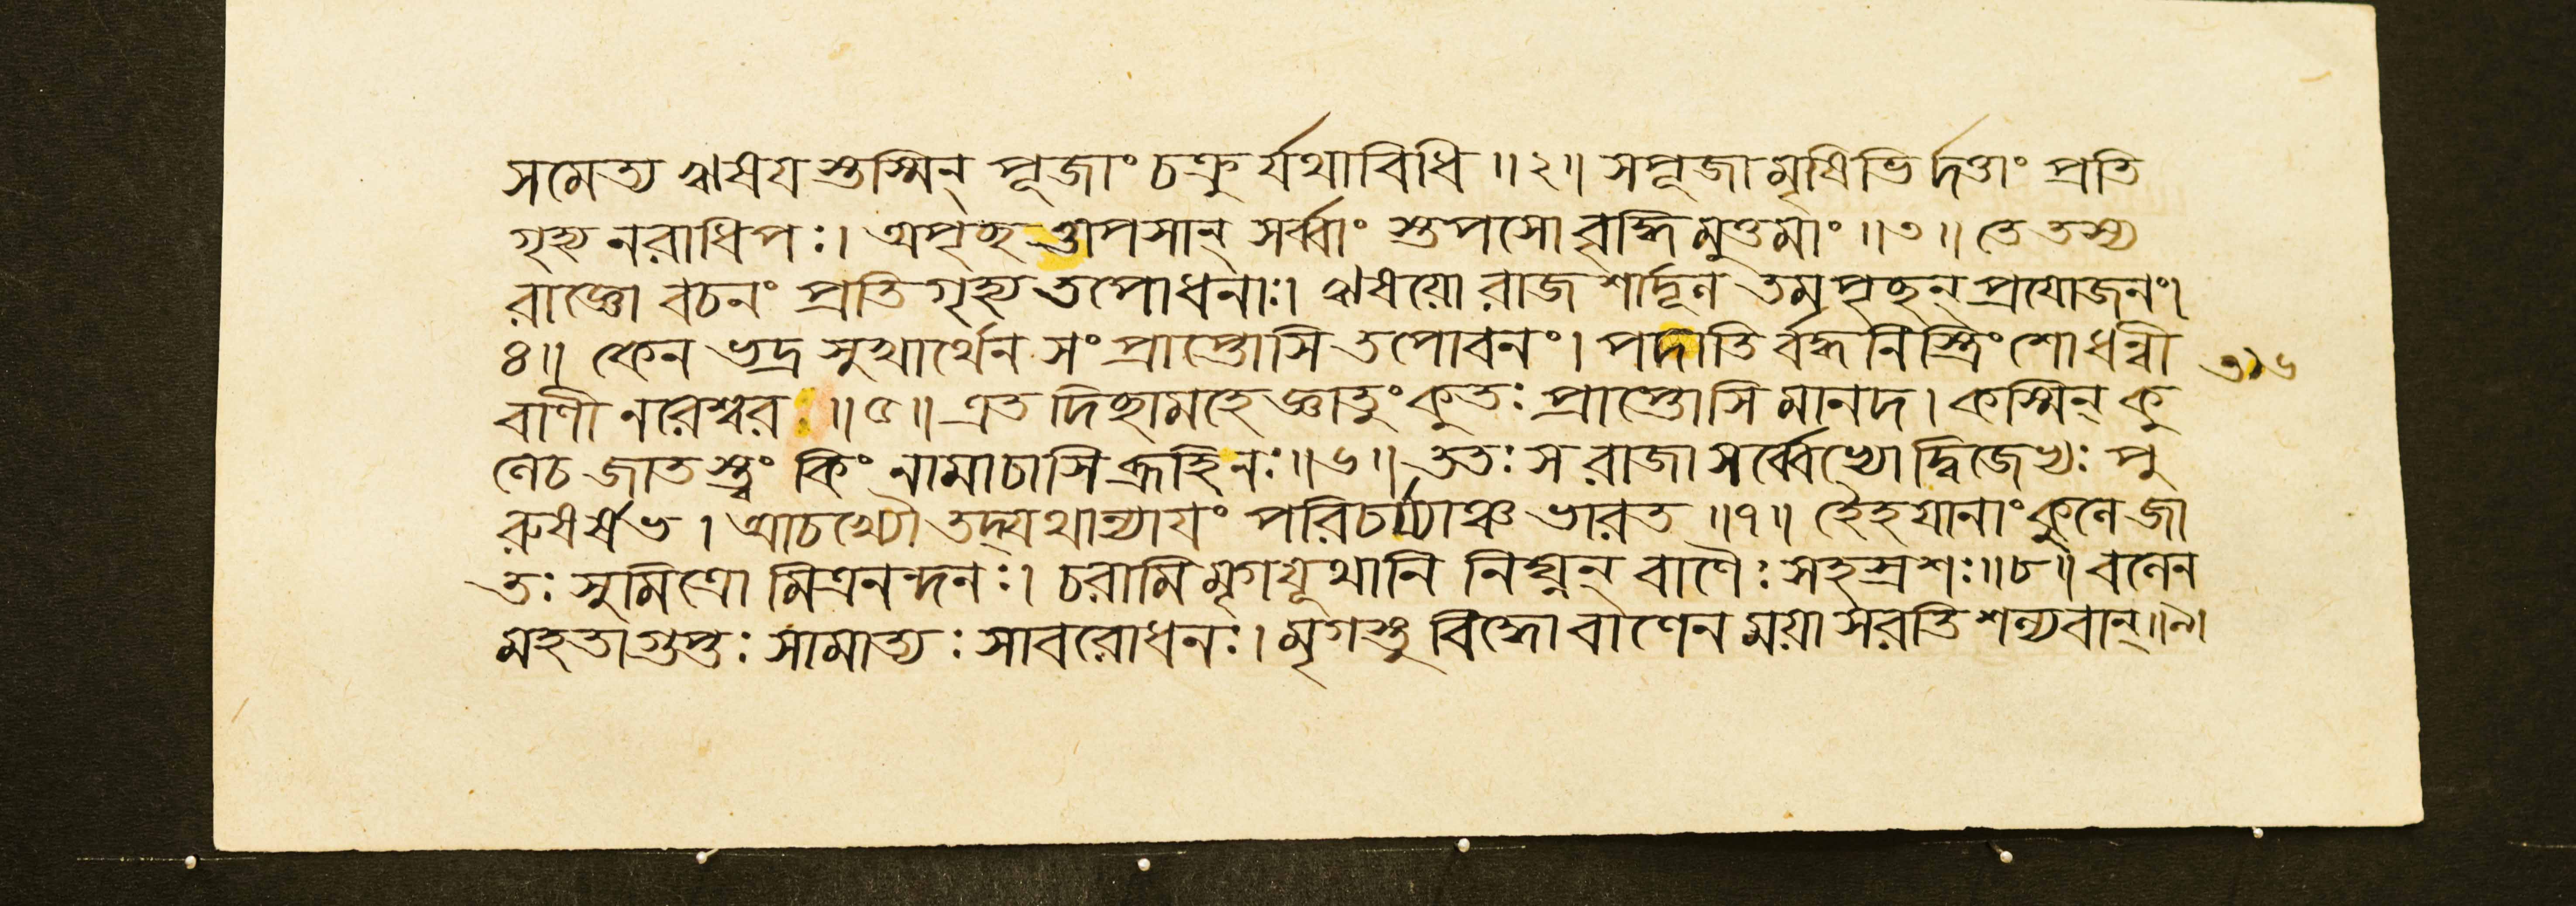 সমেত্য ঋষয স্তস্মিন্ পূজাং চক্রু র্যথাবিধি ॥২॥ সপূজা মৃষিভি র্দত্তাং প্রতি
গৃহ্য নরাধিপঃ। অপৃছ ত্তাপসান্ সর্ব্বাং স্তপসো বৃদ্ধি মুত্তমাং ॥৩॥ তে তস্য
রাজ্ঞো বচনং প্রতি গৃহ্য তপোধনাঃ। ঋষয়ো রাজ শার্দূল তমপৃছন্ প্রযোজনং।
৪॥ কেন ভদ্র সুখার্থেন সং প্রাপ্তোসি তপোবনং। পদাতি র্বদ্ধ নিস্ত্রিং শোধন্বী ৩১৬
বাণী নরেশ্বর ॥৫॥ এত দিছামহে জ্ঞাতুং কুতঃ প্রাপ্তোসি মানদ। কস্মিন্ কু
লেচ জাত স্ত্বং কিং নামাচাসি ব্রূহিনঃ॥৬॥ ততঃ স রাজা সর্ব্বেভ্যো দ্বিজেভ্যঃ পু
রুষর্ষভ। আচখ্যৌ তদ্যথান্যাযং পরিচর্য্যাঞ্চ ভারত ॥৭॥ হৈহযানাং কুলে জা
তঃ সুমিত্রো মিত্রনন্দনঃ। চরামি মৃগযূথানি নিঘ্নন্ বাণৈঃ সহস্রশঃ॥৮॥ বলেন
মহতা গুপ্তঃ সামাত্যঃ সাবরোধনঃ। মৃগস্তু বিদ্ধো বাণেন ময়া সরতি শল্যবান্॥৯।